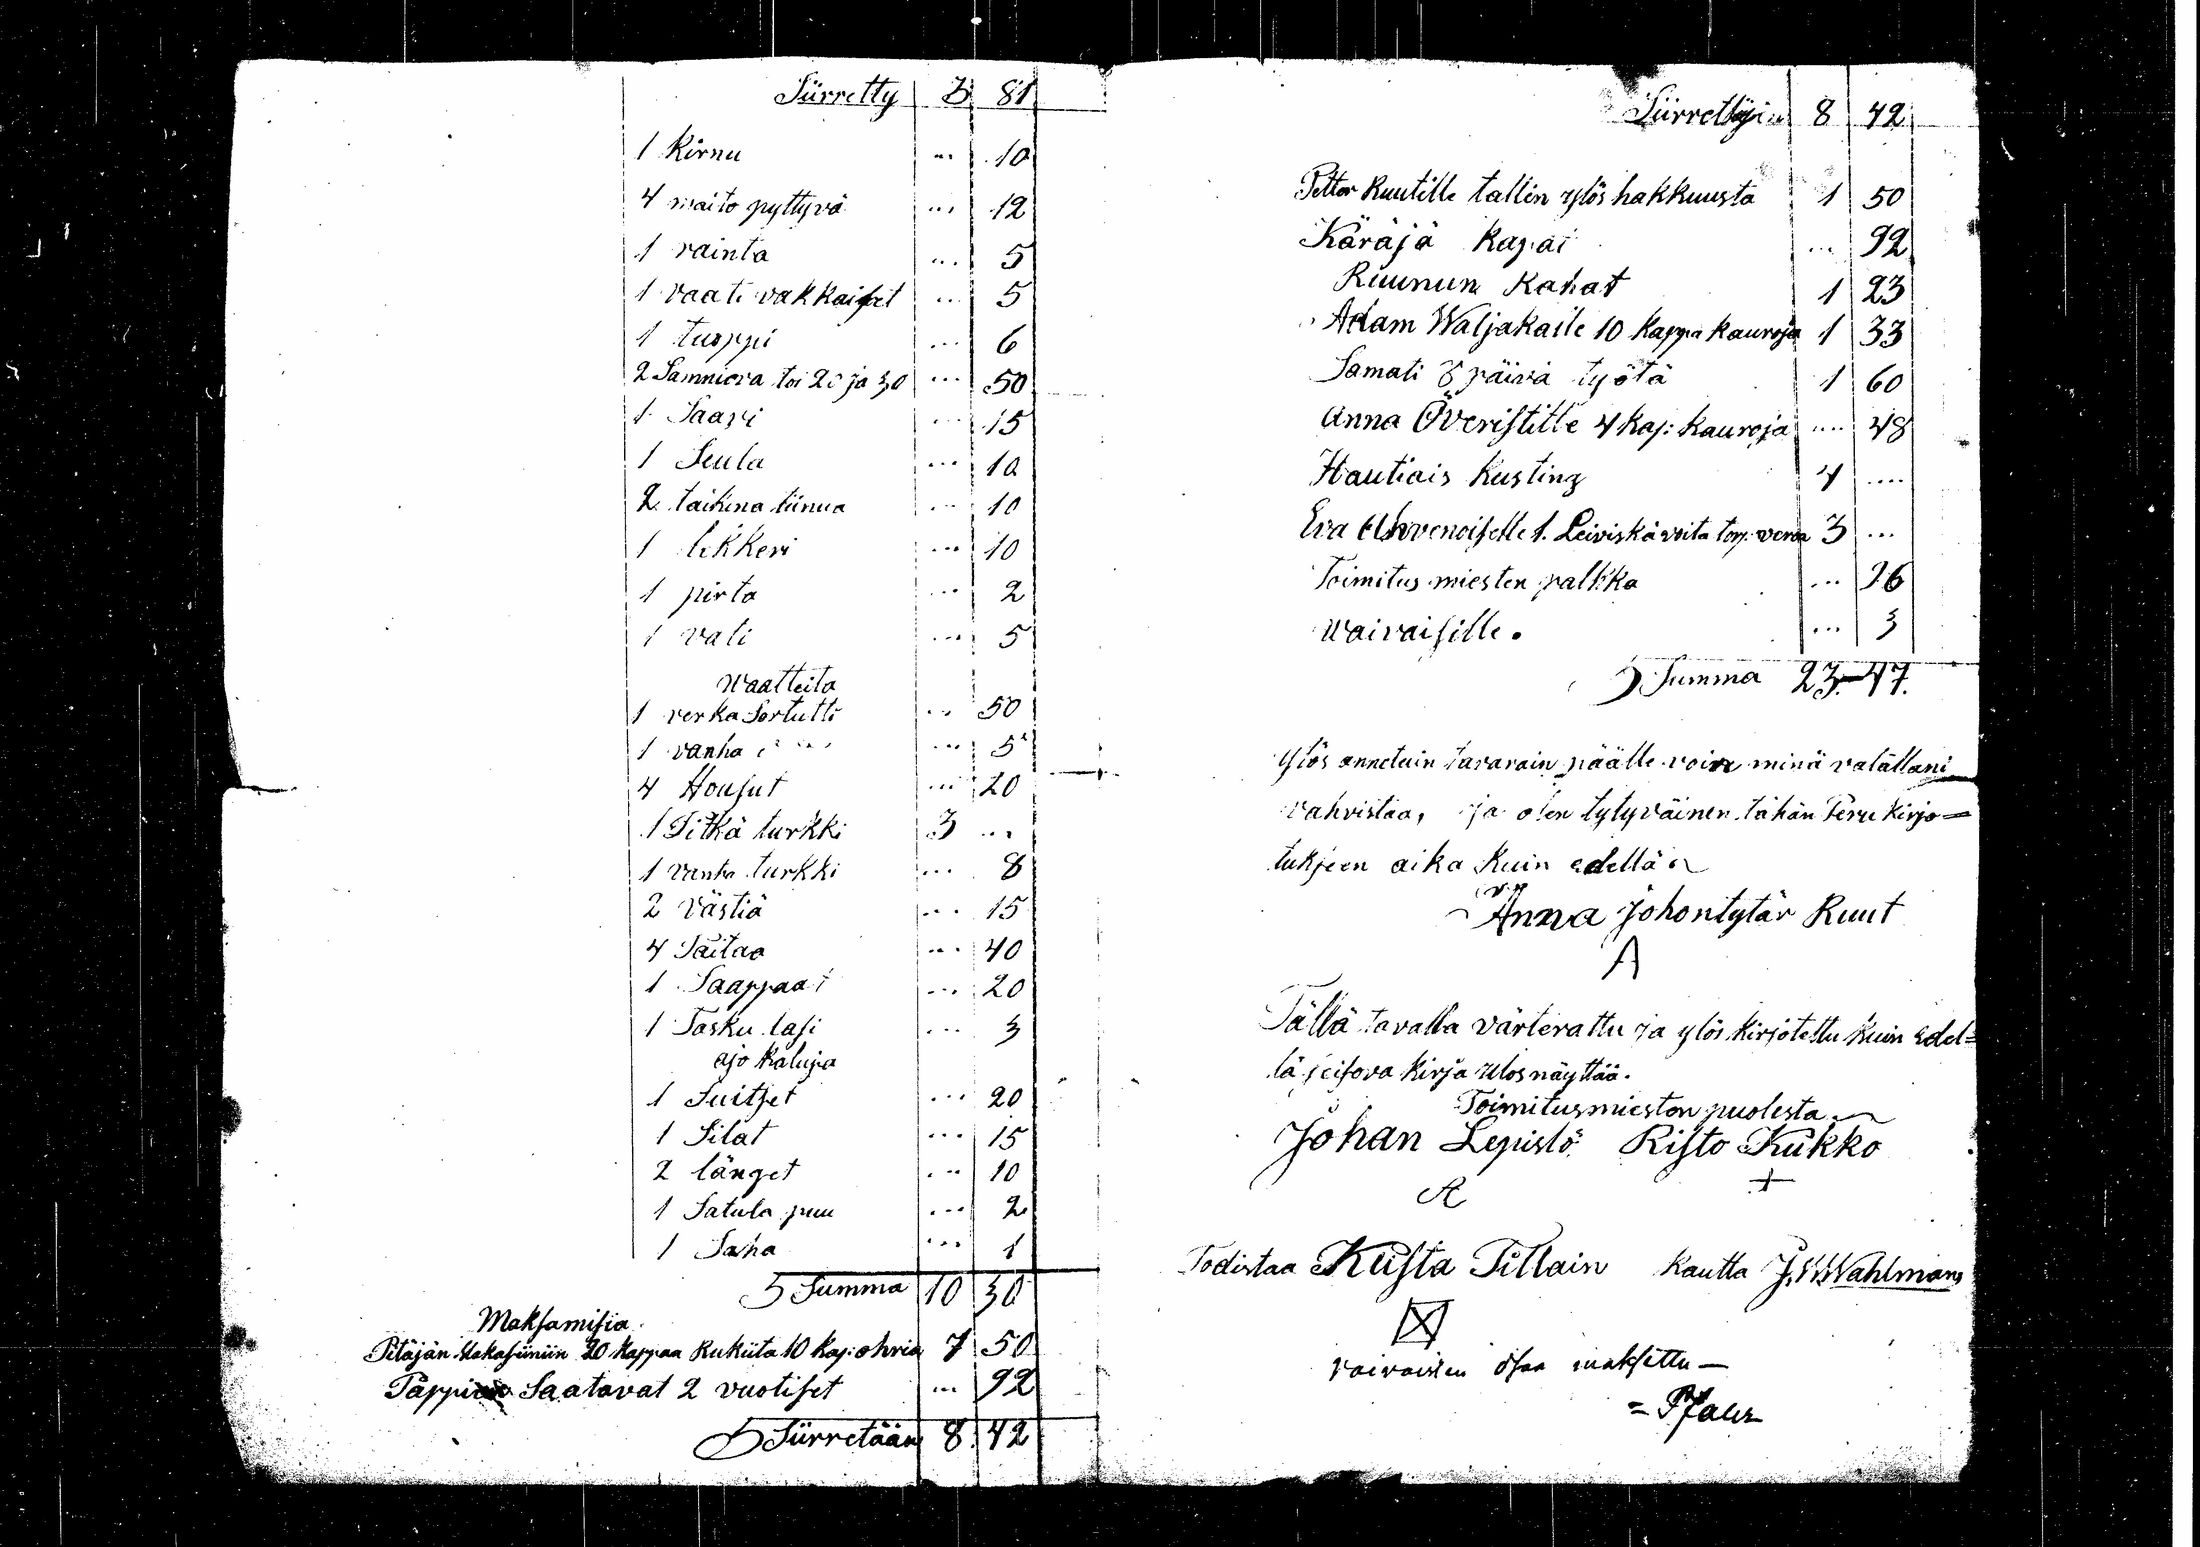 Siirretty 3 81
1 Kirnu ... 10
4 maito pyttyvä ... 12
1 rainta ... 5
1 vaate vakkaiset ... 5
1 tuoppi ... 6
2 Sammiova toi 20 ja 30 ... 50
1 Saavi ... 15
1 Seula ... 10
2 taikina tiinua ... 10
1 lekkeri ... 10
1 pirta ... 2
1 vati ... 5
Waatteita
1 verka Sortutti ... 50
1 vanha ... 5
4 Housut ... 20
1 Pitkä turkki 3 ...
1 vanha turkki ... 8
2 Västiä ... 15
4 Paitaa ... 40
1 Saappaat ... 20
1 Tasku lasi ... 3
ajo kaluja
1 Suitset ... 20
1 Silat ... 15
2 länget ... 10
1 Satula puu ... 2
1 Saha ... 1
Summa 10 30
Maksamisia
Pitäjän Makasiiniin 20 kappaa Rukiita 10 kap: ohria 7 50
Pappi Saatavat 2 vuotiset ... 92
Siirretään 8 42
Siirrettyin 8 42
Petter Ruutille tallin ylös hakkuusta 1 50
Käräjä kapat ... 92
Ruunun Rahat 1 23
Adam Waljakaile 10 kappa kauroja 1 33
Samati 8 päivä työtä 1 60
Anna Överistille 4 kap: kauroja ... 48
Hautiais kusting 4 ....
Eva Ahvenoiselle 1. Leiviskä voita torp. veroa 3 ...
Toimitus miesten palkka ... 96
Waivaisille. ... 3
Summa 23.-47.
Ylös annetuin tavarain päälle voin minä valallani
vahvistaa, ja olen tytyväinen tähän Peru kirjo=
tukseen aika kuin edellä
Anna Johontytär Ruut
A
Tällä tavalla värterattu ja ylös kirjotettu kuin edel=
lä seisova kirja ulos näyttää.
Toimitusmiesten puolesta
Johan Lepistö Risto Kukko
Todistaa Kusta Tillain kautta J. W. Wahlman
vaivaisten osaa maksettu —